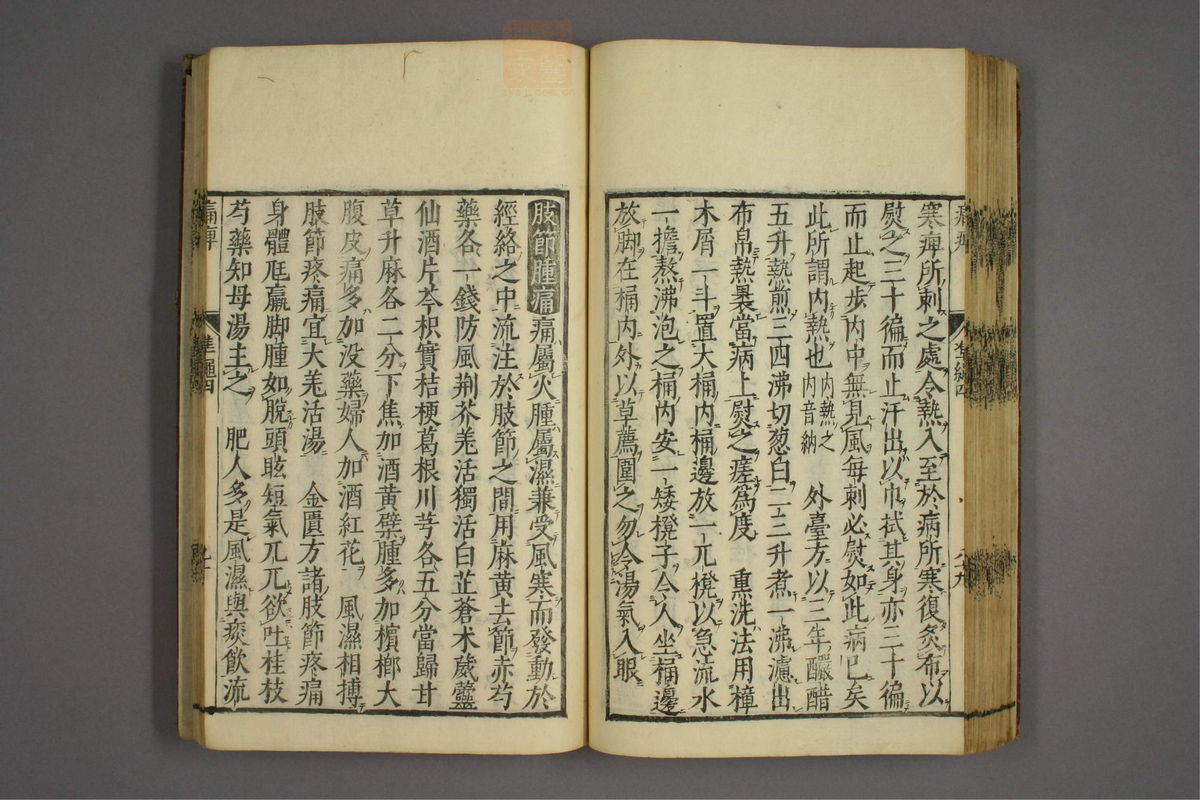 寒痺所刺之處令熱入至於病所寒復炙布以
熨之三十徧而止汗出以巾拭其身亦三十徧
而止起步內中無見風每刺必熨如此病已矣
此所謂內熱也內熱之內音納　外臺方以三年釅醋
五升熱煎三四沸切葱白二三升煮一沸濾出
布帛熱裹當病上熨之瘥爲度　熏洗法用樟
木屑一斗置大桶內桶邊放一兀櫈以急流水
一擔熬沸泡之桶內安一矮櫈子令人坐桶邊
放脚在桶內外以草薦圍之勿令湯氣入眼
肢節腫痛痛屬火腫屬濕兼受風寒而發動於
經絡之中流注於肢節之間用麻黄去節赤芍
藥各一錢防風荆芥羗活獨活白芷蒼朮葳靈
仙酒片芩枳實桔梗葛根川芎各五分當歸甘
草升麻各二分下焦加酒黄檗腫多加檳榔大
腹皮痛多加没藥婦人加酒紅花　風濕相搏
肢節疼痛宜大羗活湯　金匱方諸肢節疼痛
身體尫羸脚腫如脫頭眩短氣兀兀欲吐桂枝
芍藥知母湯主之　肥人多是風濕與痰飲流